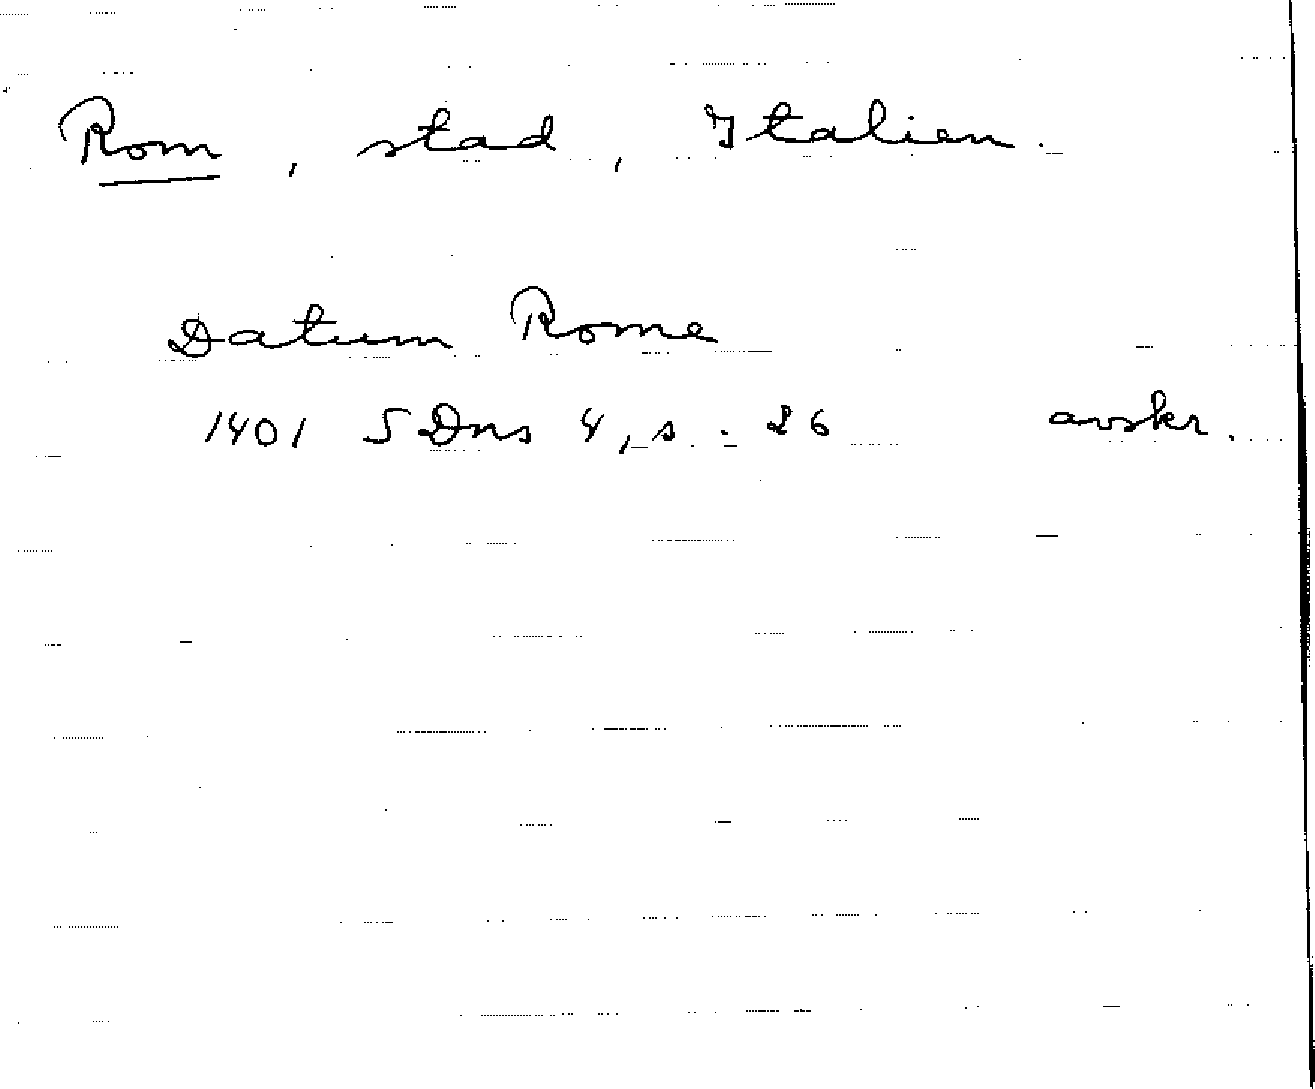 Rom, stad, Italien.
Datum Rome
1401 SDns 4, s. 26 avskr.